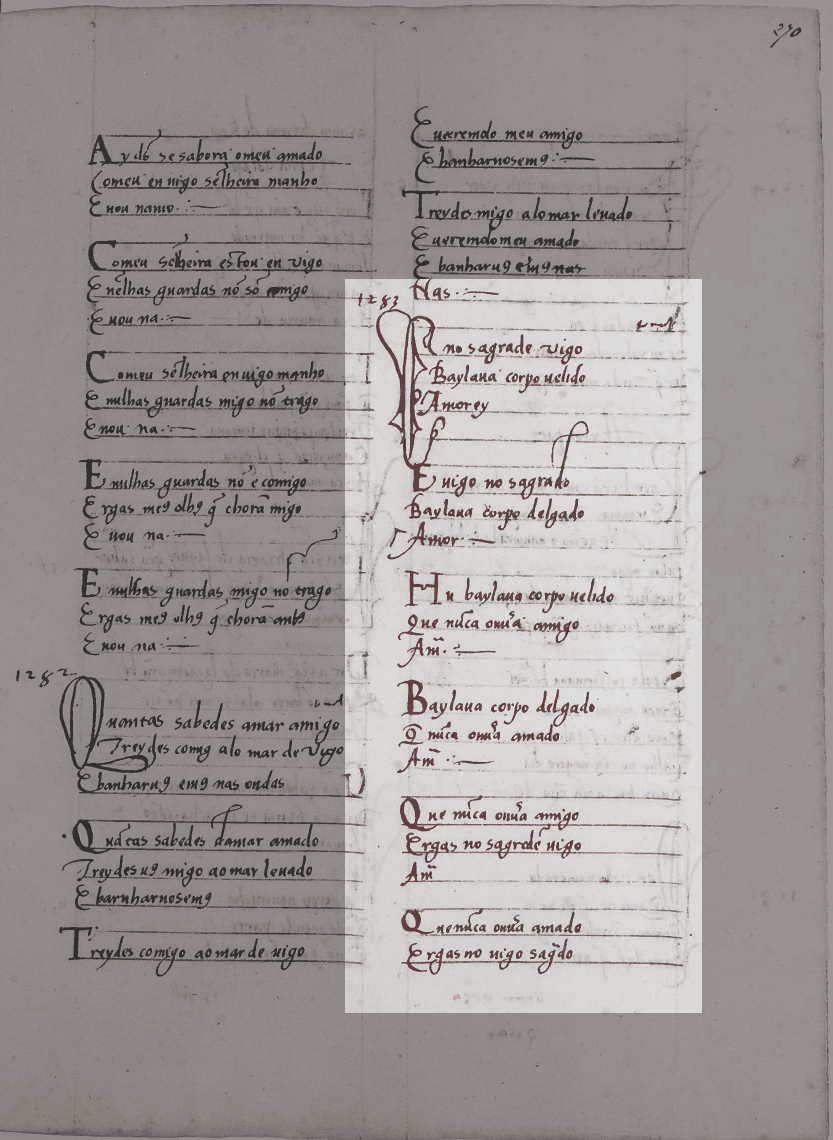 270
Ay đs se sabora omeu amado
Comeu en uigo selheira manho
E uou namo
Comeu selheira estou en vigo
E nelhas guardas nõ sõ migo
E uou na
Comeu selheira en uigo manho
E nulhas guardas migo nõ trago
E uou na
E nulhas guardas nõ e comigo
Ergas me9 olh9 q̃ chorã migo
E uou na
E nulhas guardas migo nõ trago
Ergas me9 olh9 q̃ chorã amb9
E uou na
1282
Quantas sabedes amar amigo
Treydes comig alo mar de vigo
E banharu9 em9 nas ondas
Quãtas sabedes damar amado
Treydesu9 migo ao mar leuado
E barnharnosem9
Treydes comigo ao mar de uigo
E ueeremolo meu amigo
E banharnosem9
Treydes migo alo mar leuado
E ueremolo meu amado
E banharu9 em9 nas
Nas
1283
E no sagrade vigo
Baylaua corpo uelido
Amorey
E uigo no sagrado
Baylaua corpo delgado
Amor
Hu baylaua corpo uelido
Que nũca ouu'a amigo
Am̃
Baylaua corpo delgado
Q̃ nũca ouu'a amado
Am̃
Que nũca ouu'a amigo
Ergas no sagrade uigo
Am̃
Que nũca ouu'a amado
Ergas no uigo sag̃do